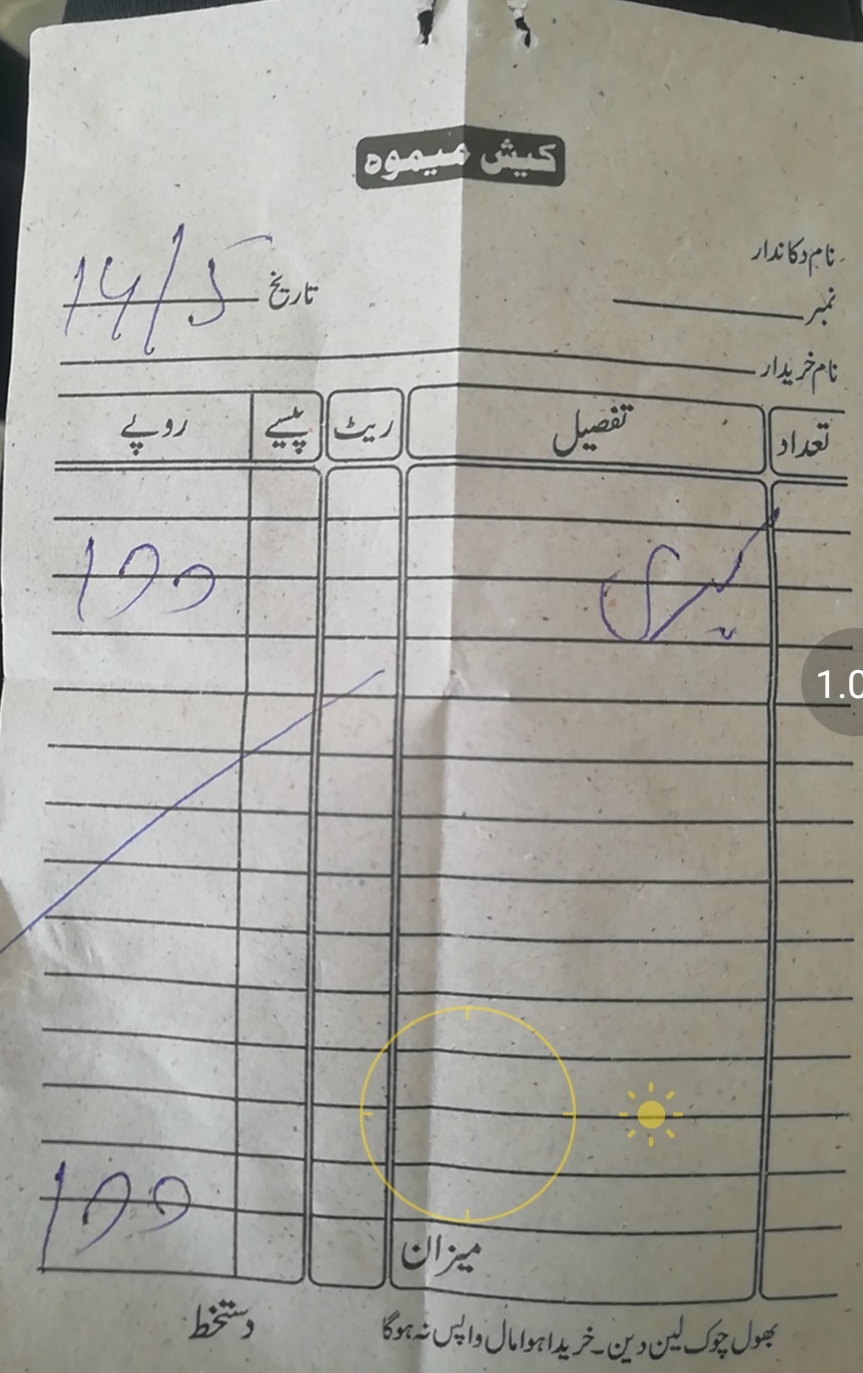 کیش میموہ
نام دکاندار
نمبر تاریخ 14/5
نام خریدار
تعداد تفصیل ریٹ پیسے روپے
100
میزان 100
بھول چوک لین دین۔ خریدا ہوا مال واپس نہ ہوگا دستخط
1.0